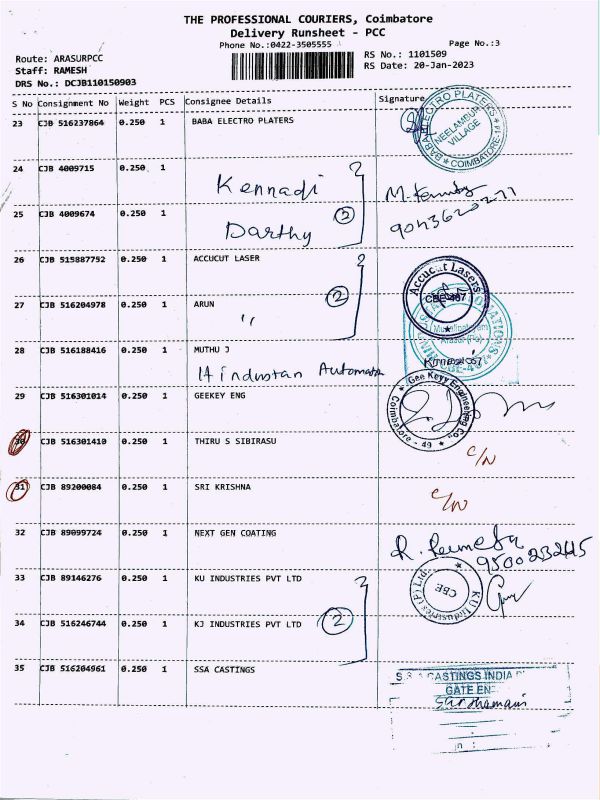 THE PROFESSIONAL COURIERS, Coimbatore
Delivery Runsheet - PCC
Phone No.:0422-3505555
Page No.:3
Route: ARASURPCC
RS No.: 1101509
Staff: RAMESH
RS Date: 20-Jan-2023
DRS No.: DCJB110150903
S No Consignment No Weight PCS Consignee Details Signature
23 CJB 516237864 0.250 1 BABA ELECTRO PLATERS
BABA ELECTRO PLATERS
NEELAMBUR
VILLAGE
COIMBATORE
24 CJB 4009715 0.250 1
Kennadi
25 CJB 4009674 0.250 1
Darthy
2
26 CJB 515887752 0.250 1 ACCUCUT LASER
Accucut Lasers
27 CJB 516204978 0.250 1 ARUN
2
28 CJB 516188416 0.250 1 MUTHU J
Hindustan Automats
29 CJB 516301014 0.250 1 GEEKEY ENG
Gee Keyy Engineering Co.
Coimbatore - 49
30 CJB 516301410 0.250 1 THIRU S SIBIRASU
C/N
31 CJB 89200084 0.250 1 SRI KRISHNA
C/N
32 CJB 89099724 0.250 1 NEXT GEN COATING
33 CJB 89146276 0.250 1 KU INDUSTRIES PVT LTD
KU Industries (P) Ltd.
CBE
34 CJB 516246744 0.250 1 KJ INDUSTRIES PVT LTD
2
35 CJB 516204961 0.250 1 SSA CASTINGS
CASTINGS INDIA
GATE EN